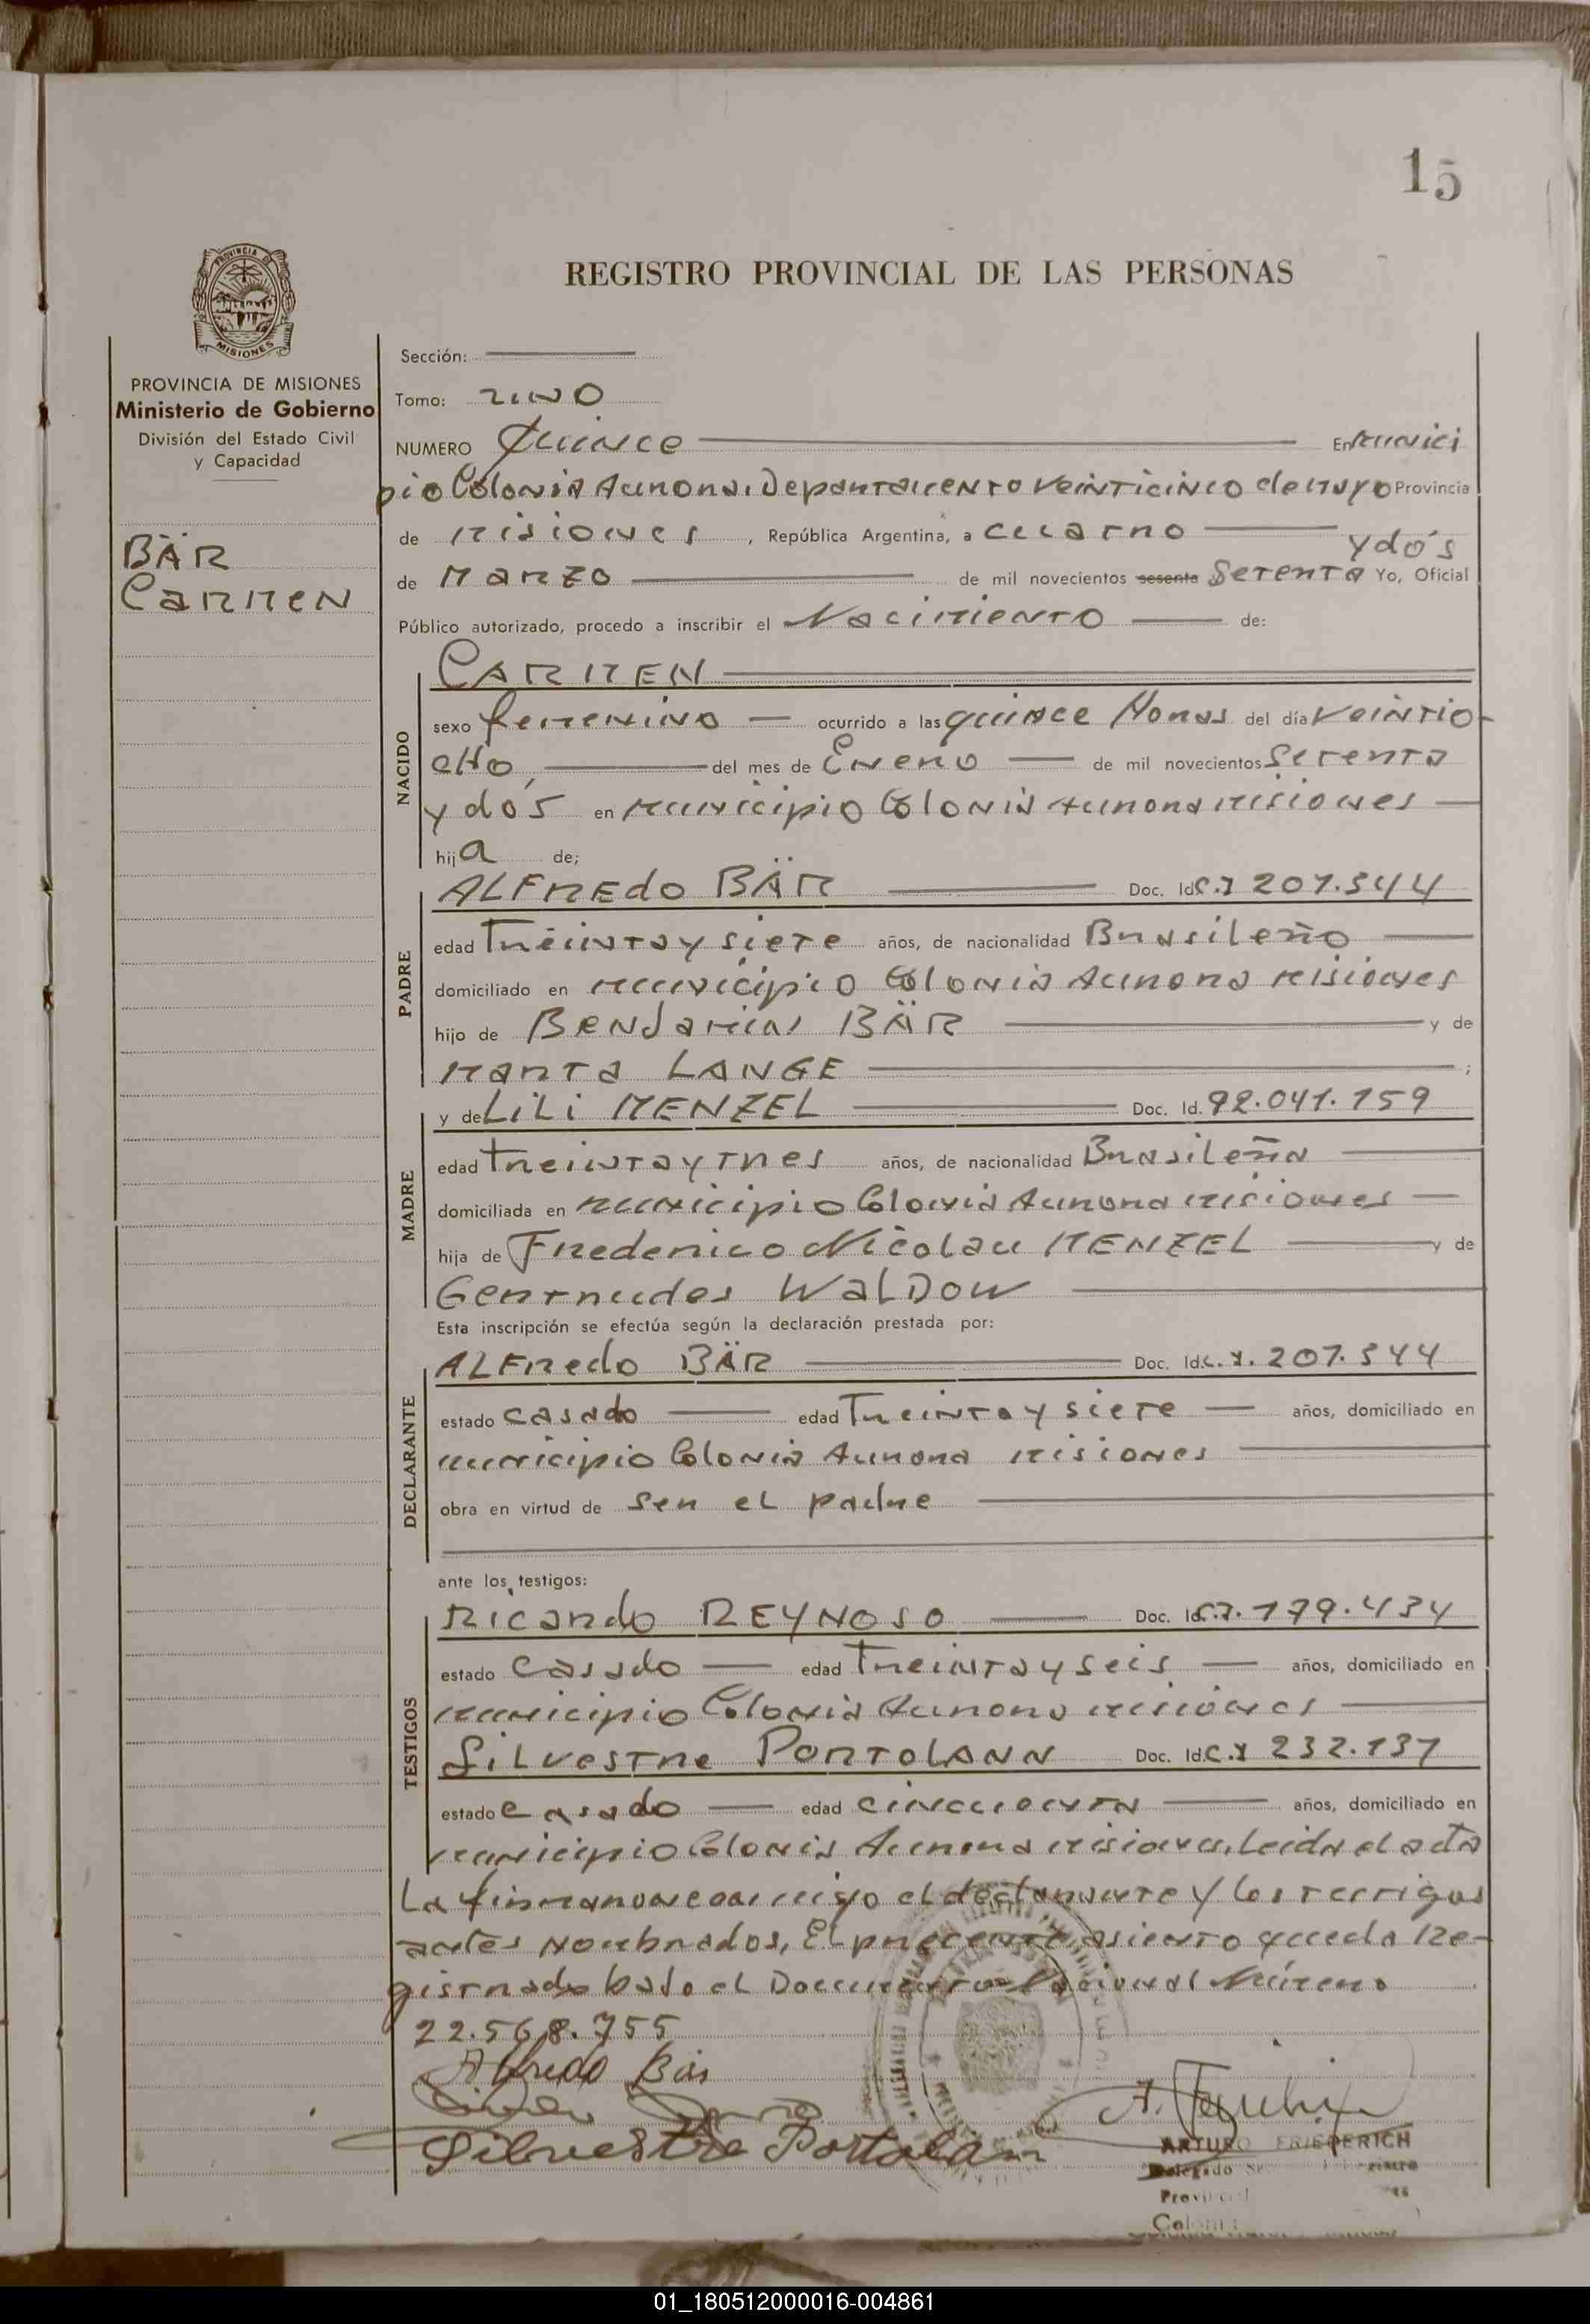 15
REGISTRO PROVINCIAL DE LAS PERSONAS
PROVINCIA DE MISIONES
PROVINCIA DE MISIONES
Ministerio de Gobierno
División del Estado Civil
y Capacidad
BÄR
Carmen
Sección:
Tomo: uno
NUMERO Quince En Munici
pio Colonia Aurora, Departamento Veinticinco de mayo Provincia
de Misiones, República Argentina, a cuatro
y dós
de Marzo de mil novecientos sesenta Setenta Yo, Oficial
Público autorizado, procedo a inscribir el Nacimiento de:
NACIDO
CARMEN
sexo femenino ocurrido a las quince Horas del día veintio-
cHo, del mes de Enero de mil novecientos Setenta
y dós en Municipio Colonia Aurora Misiones
hija de;
PADRE
ALFREdo BÄR Doc. Id. C.I 207.544
edad Treinta y siete años, de nacionalidad Brasileño
domiciliado en municipio Colonia Aurora Misiones
hijo de BENJamin BÄR y de
Marta LANGE ;
MADRE
y de LiLi MENZEL Doc. Id. 92.041.159
edad treinta y tres años, de nacionalidad Brasileña
domiciliada en Municipio Colonia Aurora Misiones
hija de Frederico Nicolau MENZEL y de
Gertrudes WalDow
Esta inscripción se efectúa según la declaración prestada por:
DECLARANTE
ALFredo BÄR Doc. Id. C.I. 207.544
estado casado edad Treinta y siete años, domiciliado en
municipio Colonia Aurora Misiones
obra en virtud de ser el padre
ante los testigos:
TESTIGOS
Ricardo REYNOSO Doc. Id. C.I. 179.434
estado Casado edad Treinta y seis años, domiciliado en
municipio Colonia Aurora Misiones
Silvestre PORTOLANN Doc. Id. C.I 232.131
estado casado edad cincuenta años, domiciliado en
municipio Colonia Aurora Misiones, Leida el acta
La firmaron conmigo el declarante y los testigos
antes nombrados, El presente asiento queda Re-
gistrado bajo el Documento Nacional Número
22.568.755
Alfredo Bär
Silvestre Portolann
ARTURO FRIEDERICH
Delegado
Provincial
Colonia
01_180512000016-004861